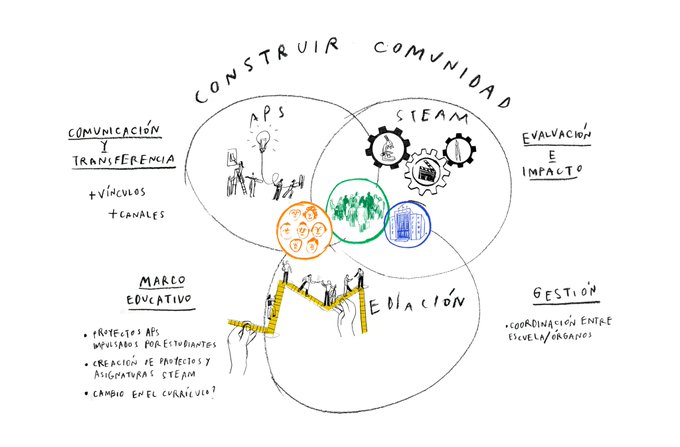 CONSTRUIR COMUNIDAD
APS
STEAM
COMUNICACIÓN
Y
TRANSFERENCIA
+VÍNCULOS
+CANALES
EVALUACIÓN
E
IMPACTO
MARCO
EDUCATIVO
• PROYECTOS APS
IMPULSADOS POR ESTUDIANTES
• CREACIÓN DE PROYECTOS Y
ASIGNATURAS STEAM
• CAMBIO EN EL CURRÍCULO?
MEDIACIÓN
GESTIÓN
• COORDINACIÓN ENTRE
ESCUELA/ÓRGANOS